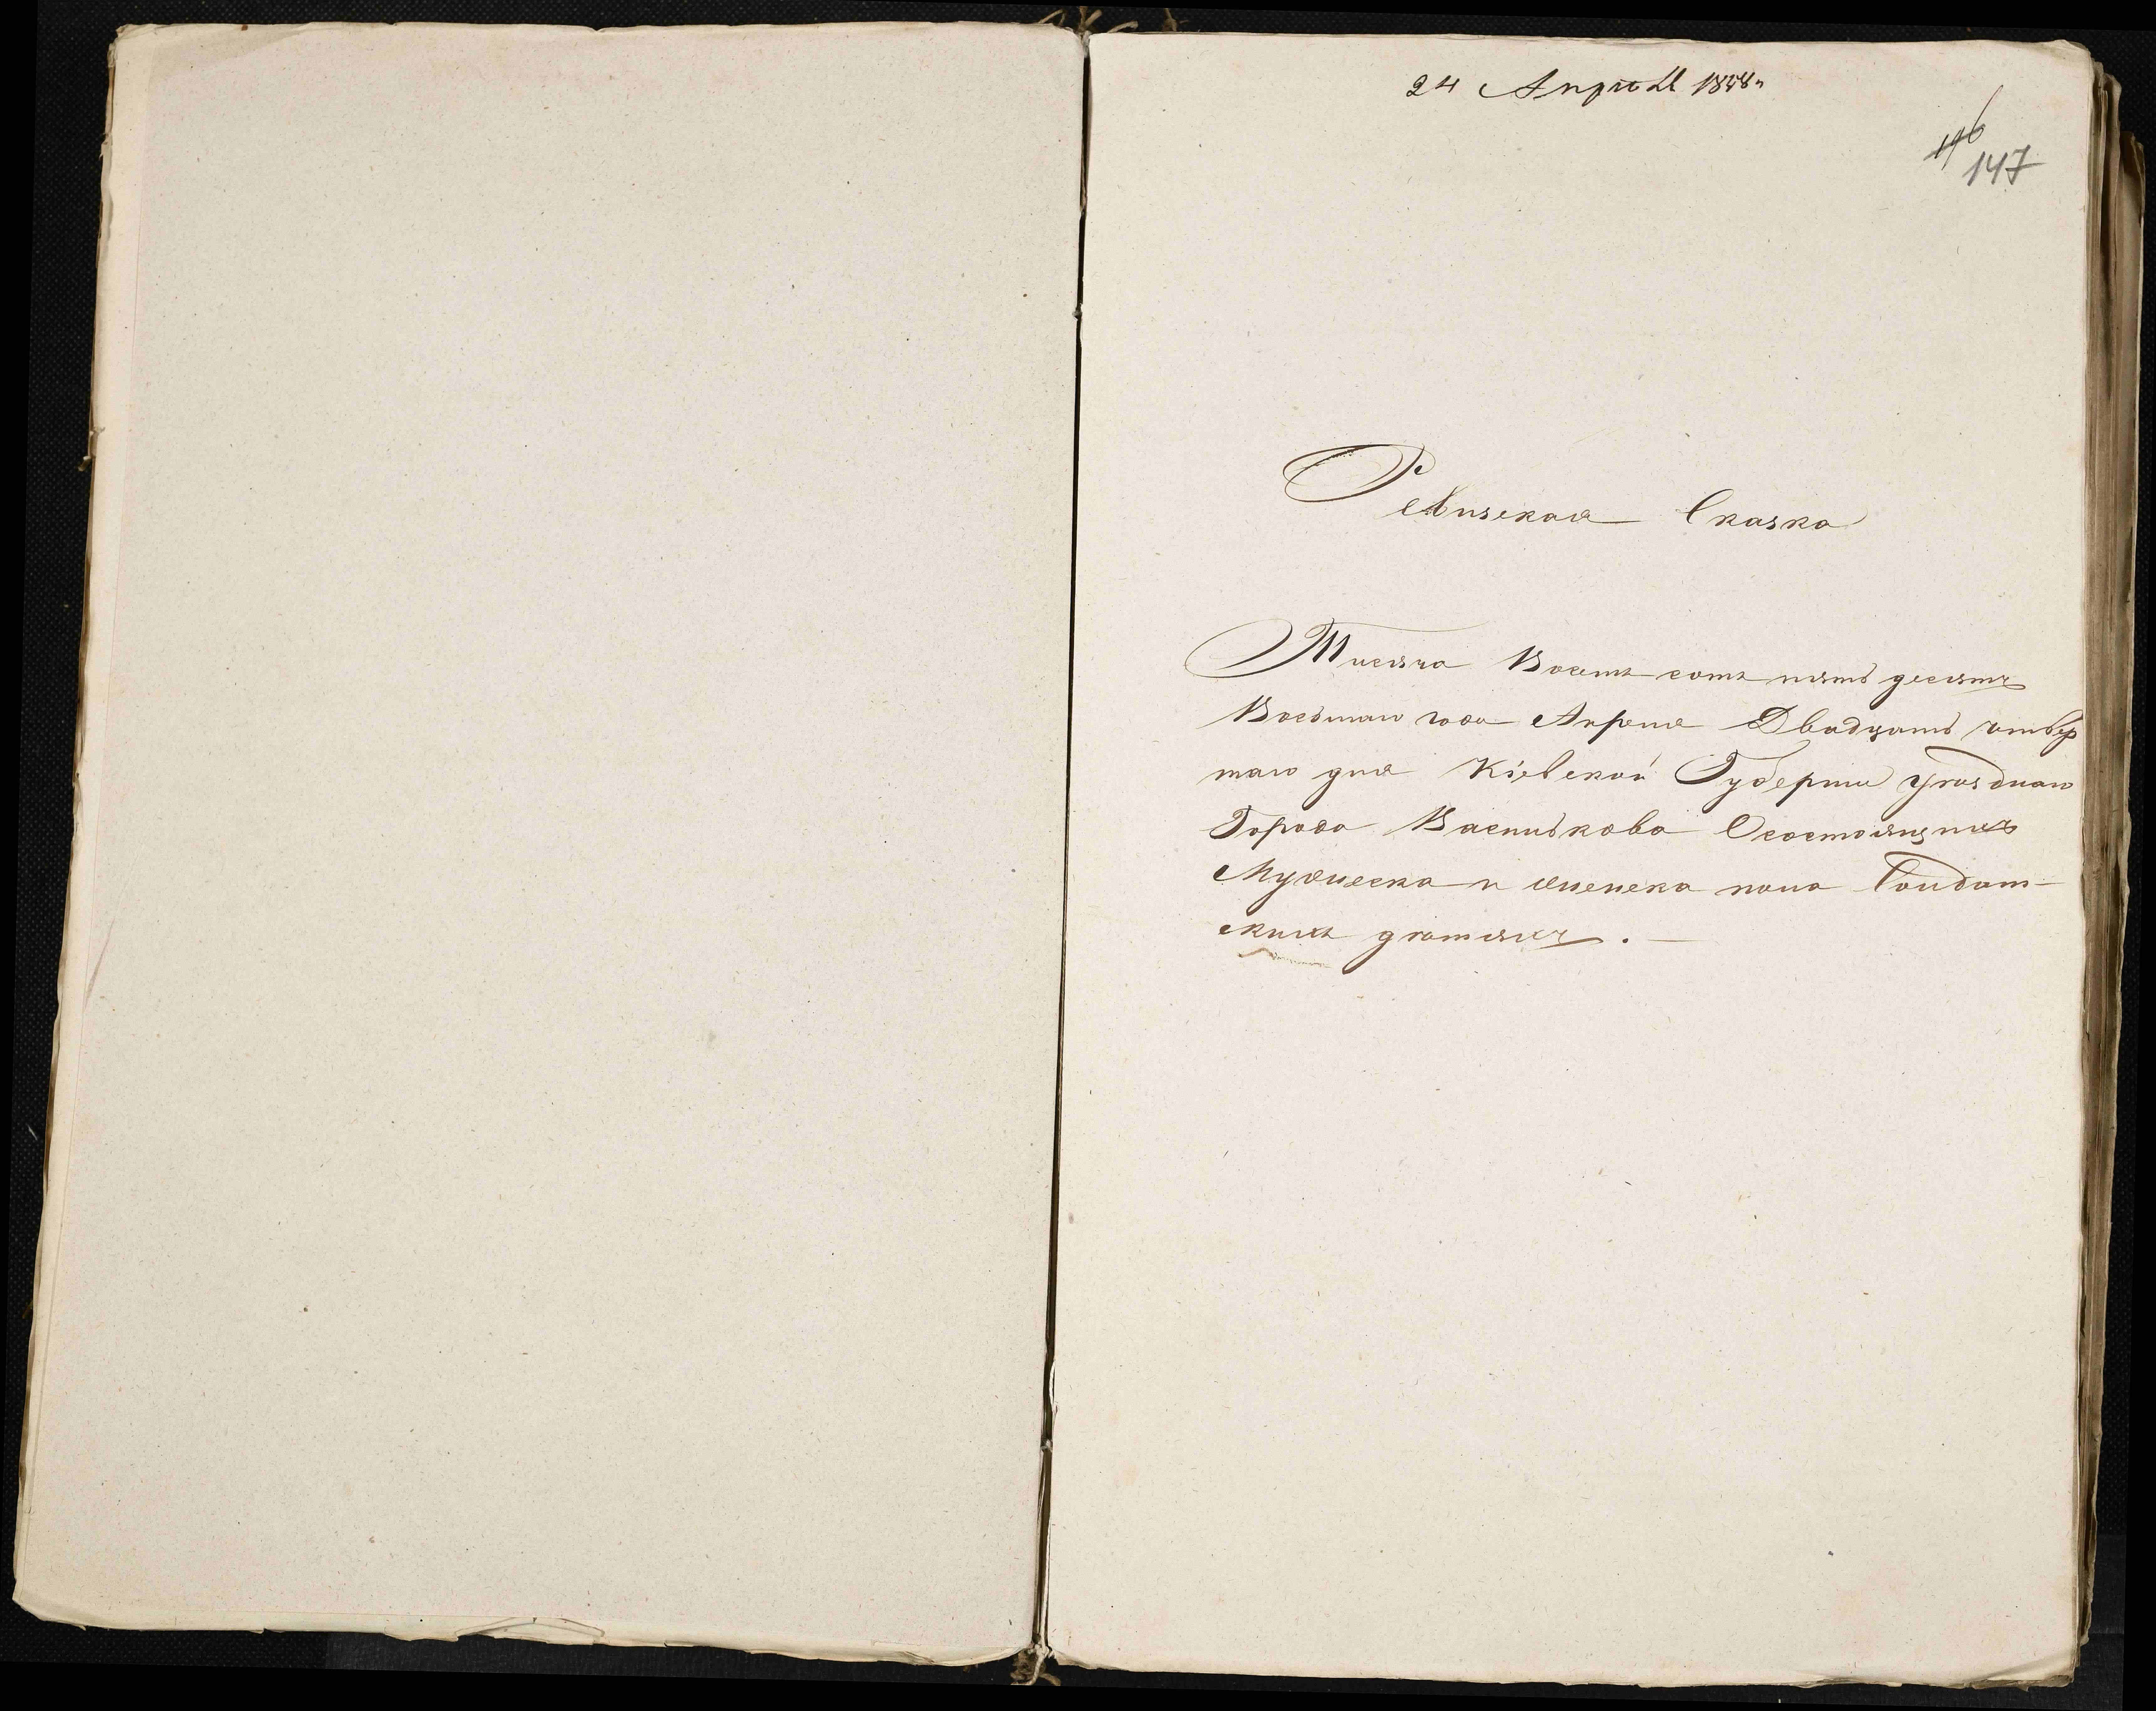 24 Апрѣля 1858 г
146
147
Ревизская Сказка
Тисяча Восемъ сотъ пять десятъ
Восьмаго года Апреля Двадцать четвер
таго дня Кіевской Губерніи уѣзднаго
Города Василькова О состоящихъ
Мужеска и женска пола Солдат-
скихъ дѣтяхъ. —